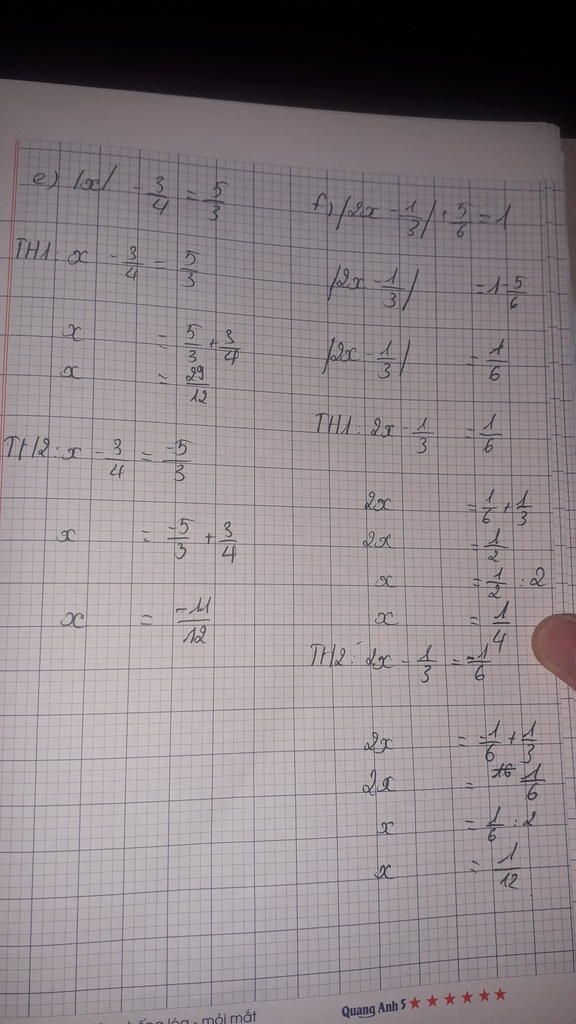 e) |x| - 3/4 = 5/3
TH1: x - 3/4 = 5/3
x = 5/3 + 3/4
x = 29/12
TH2: x - 3/4 = -5/3
x = -5/3 + 3/4
x = -11/12
f) |2x - 1/3| + 5/6 = 1
|2x - 1/3| = 1 - 5/6
|2x - 1/3| = 1/6
TH1: 2x - 1/3 = 1/6
2x = 1/6 + 1/3
2x = 1/2
x = 1/2 : 2
x = 1/4
TH2: 2x - 1/3 = -1/6
2x = -1/6 + 1/3
2x = 1/6
x = 1/6 : 2
x = 1/12
lóa - mỏi mắt
Quang Anh 5 ★★★★★★